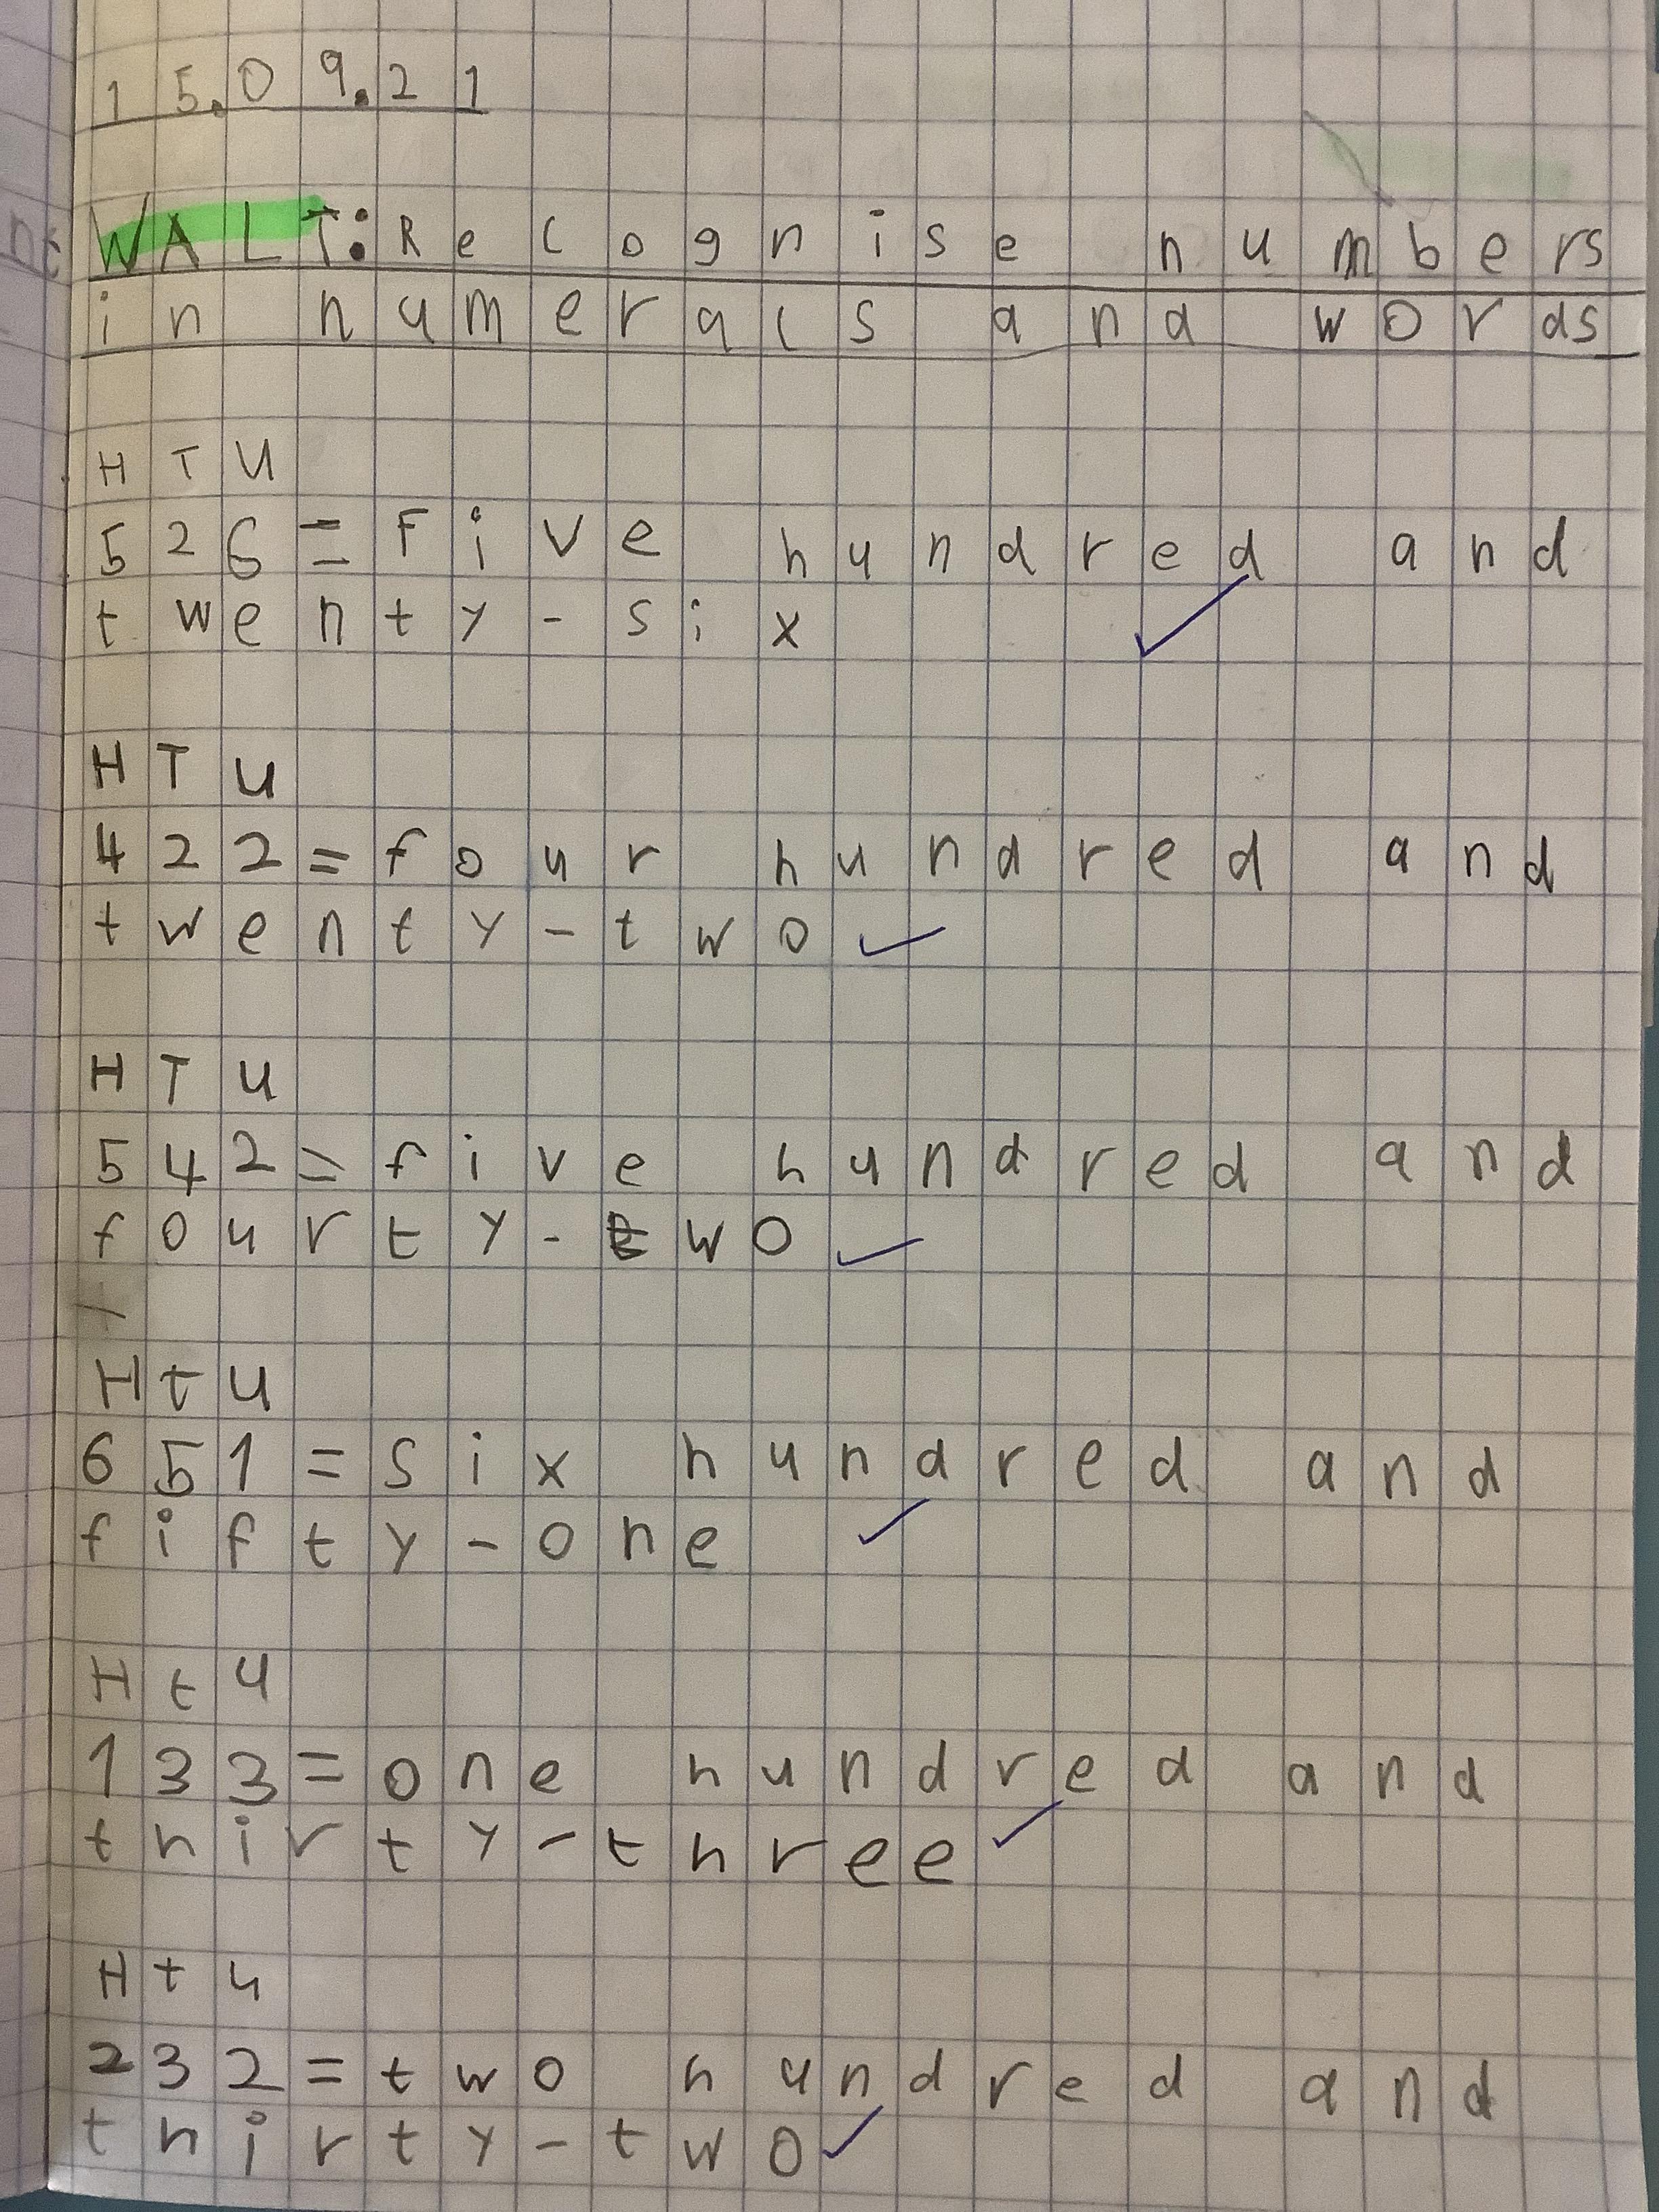 15.09.21
WALT: Recognise numbers
in numerals and words
H T U
526 = Five hundred and
twenty-six
H T U
422 = four hundred and
twenty-two
H T U
542 = five hundred and
fourty-two
H t U
651 = six hundred and
fifty-one
H t U
133 = one hundred and
thirty-three
H t u
232 = two hundred and
thirty-two